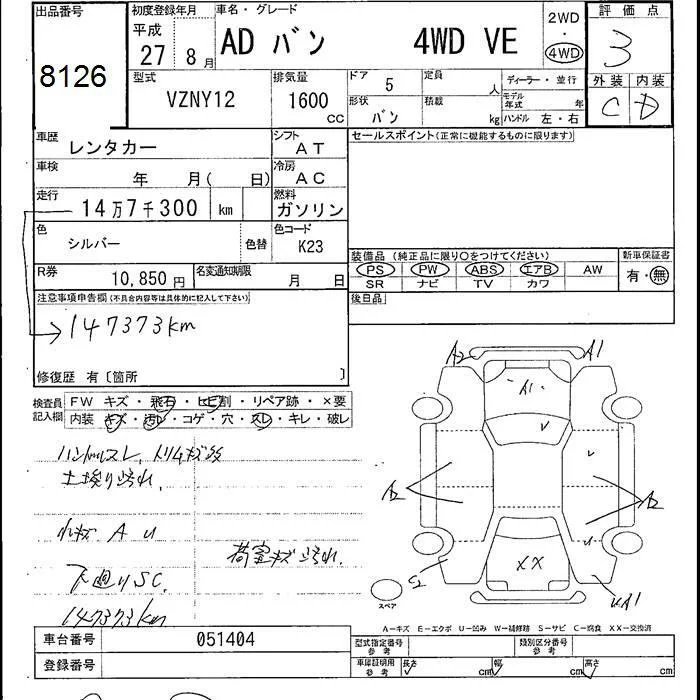 出品番号
8126
初度登録年月
平成
27 8月
車名・グレード
AD バン 4WD VE
2WD
・
4WD
評価点
3
外装 内装
C D
型式
VZNY12
排気量
1600
CC
ドア
5
定員
人
形状
バン
積載
kg
ディーラー・並行
モデル年式 年
ハンドル 左・右
車歴
レンタカー
シフト
AT
車検
年 月( 日)
冷房
AC
走行
14万7千300 km
燃料
ガソリン
色
シルバー
色替
色コード
K23
R券
10,850円
名変通知期限
月 日
セールスポイント(正常に機能するものに限ります)
装備品 (純正品に限り○をつけてください)
PS PW ABS エアB AW
SR ナビ TV カワ
新車保証書
有・無
後日品
注意事項申告欄(不具合内容等は具体的に記入して下さい)
147373km
修復歴 有〔箇所 〕
検査員記入欄
FW キズ・飛石・ヒビ割・リペア跡・×要
内装 キズ・汚れ・コゲ・穴・スレ・キレ・破レ
ハンドルスレ、トリムキズ多
土埃り汚れ、
ルーフ A U
荷室キズ汚れ、
下廻りSC.
147373km
A2 A1
A1
A2
A2
S2
XX
XA1
スペア
A−キズ E−エクボ U−凹み W−補修跡 S−サビ C−腐食 XX−交換済
車台番号
051404
登録番号
型式指定番号
参考
類別区分番号
参考
車庫証明用
参考
長さ cm
幅 cm
高さ cm